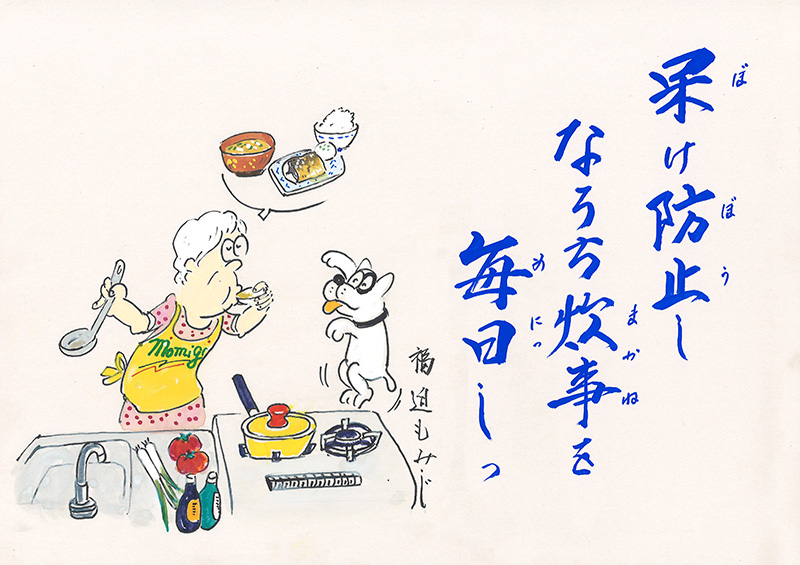 呆け防止し
ぼ ぼう
なろち炊事を
まかね
毎日しっ
めにっ
福迫もみじ